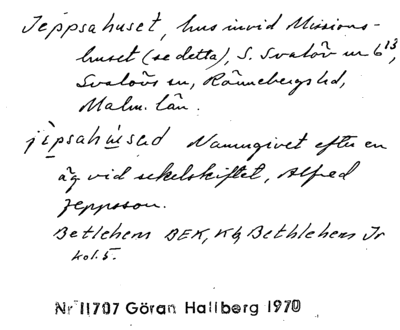 Jeppsahuset, hus invid Missions-
huset (se detta), S. Svalöv nr 6¹³,
Svalövs sn, Rönnebergs hd,
Malm. län.
jìpsahúsəd Namngivet efter en
äg vid sekelskiftet, Alfred
Jeppsson.
Betlehem BEK, Kb, Bethlehem Jr
kol. 5.
Nr 11707 Göran Hallberg 1970